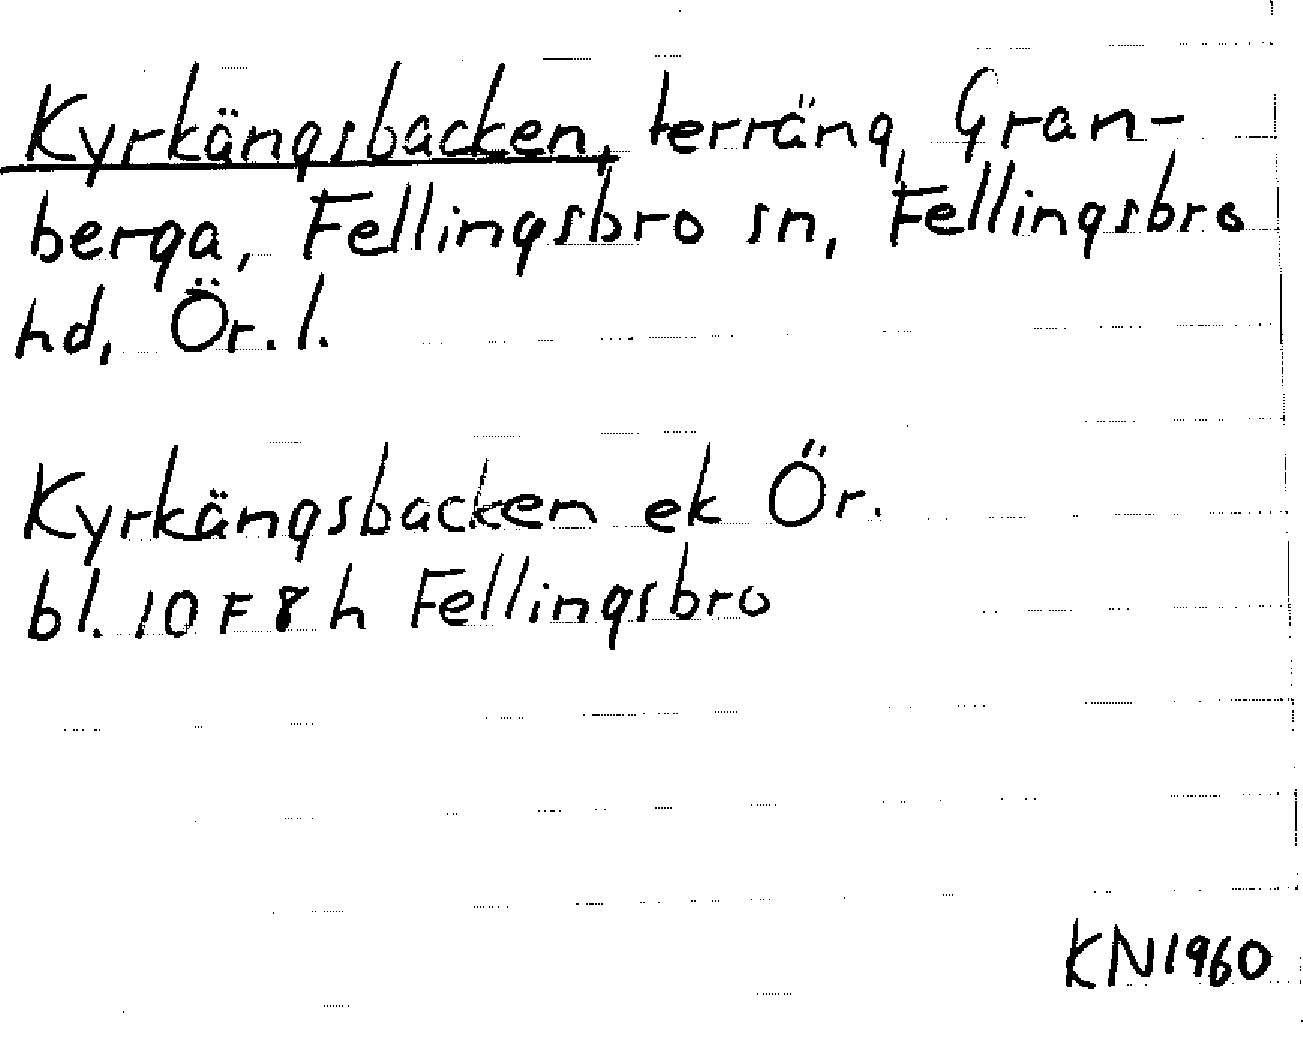 Kyrkängsbacken, terräng, Gran-
berga, Fellingsbro sn, Fellingsbro
hd, Ör. l.
Kyrkängsbacken ek Ör.
bl. 10F8h Fellingsbro
KN1960